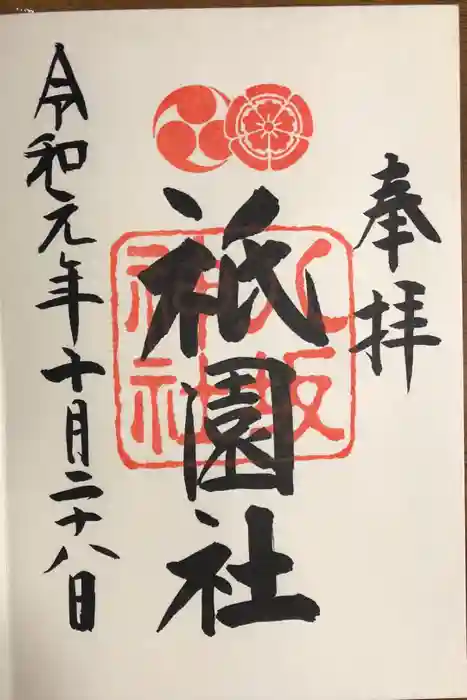 奉拝
祇園社
八坂神社
令和元年十月二十八日